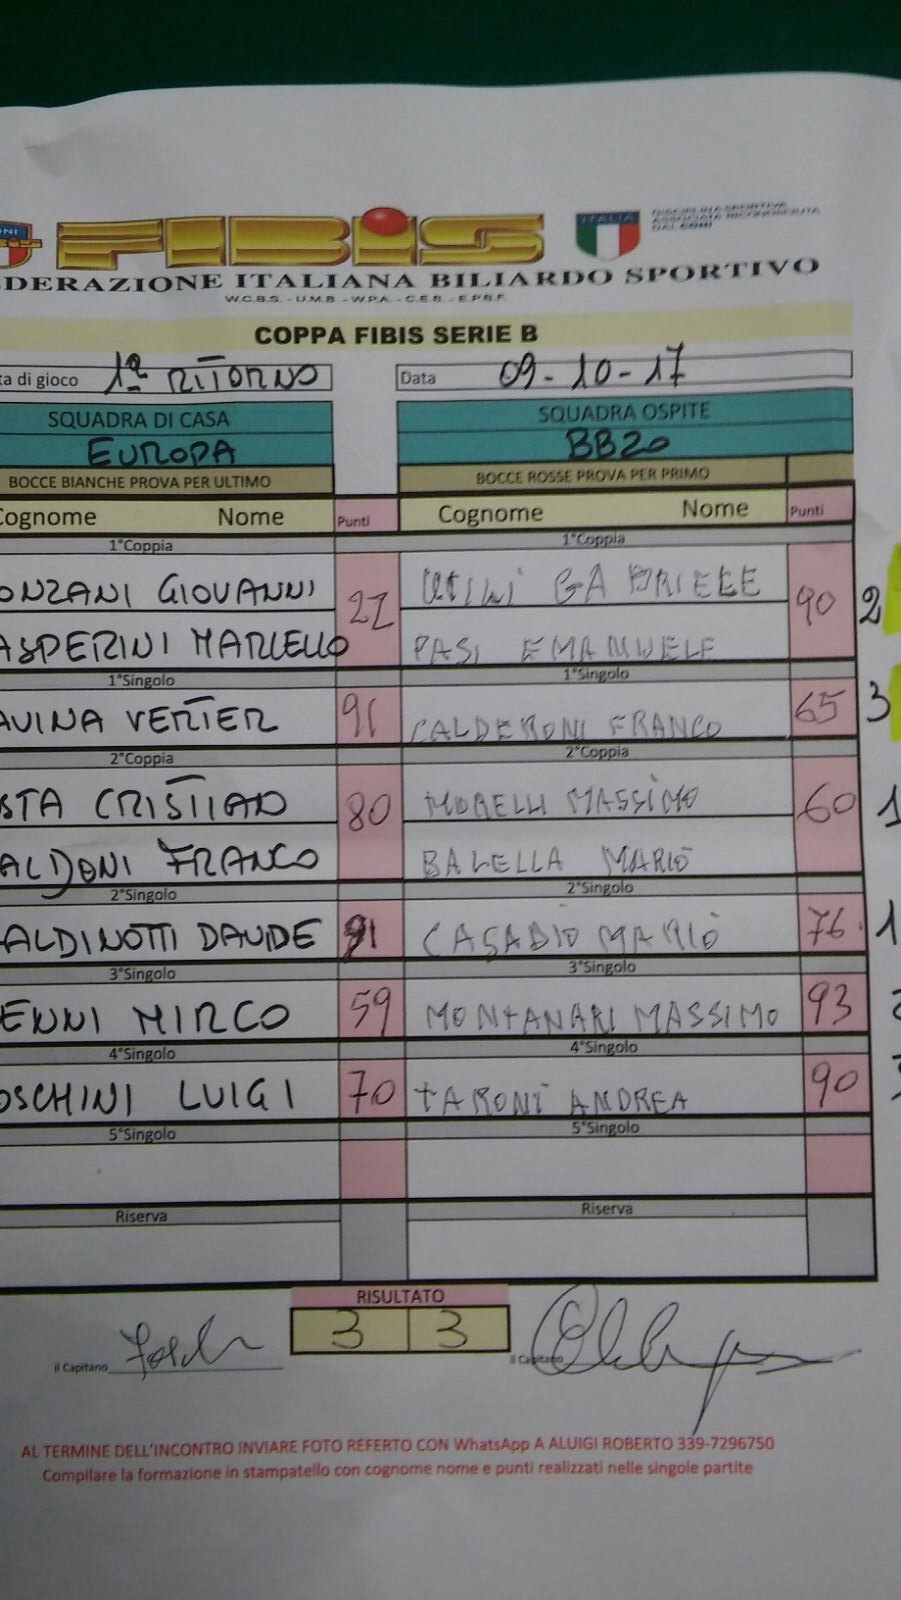 FIBIS
ITALIA
DISCIPLINA SPORTIVA
ASSOCIATA RICONOSCIUTA
DAL CONI
DERAZIONE ITALIANA BILIARDO SPORTIVO
W.C.B.S. - U.M.B. - W.P.A. - C.E.B. - E.P.B.F.
COPPA FIBIS SERIE B
ta di gioco 1ª RITORNO Data 09-10-17
SQUADRA DI CASA SQUADRA OSPITE
EUROPA BB20
BOCCE BIANCHE PROVA PER ULTIMO BOCCE ROSSE PROVA PER PRIMO
Cognome Nome Punti Cognome Nome Punti
1°Coppia 1°Coppia
ONZANI GIOVANNI GABRIELE 90 2
ASPERINI MARCELLO PASI EMANUELE
1°Singolo 1°Singolo
AVINA VERTER 91 CALDERONI FRANCO 65 3
2°Coppia 2°Coppia
STA CRISTIAN 80 MORELLI MASSIMO 60 1
ALDONI FRANCO BALELLA MARIO
2°Singolo 2°Singolo
ALDINOTTI DAVIDE 91 CASADIO MARIO 76 1
3°Singolo 3°Singolo
ENNI MIRCO 59 MONTANARI MASSIMO 93
4°Singolo 4°Singolo
OSCHINI LUIGI 70 TARONI ANDREA 90
5°Singolo 5°Singolo
Riserva Riserva
RISULTATO
3 3
il Capitano il Capitano
AL TERMINE DELL'INCONTRO INVIARE FOTO REFERTO CON WhatsApp A ALUIGI ROBERTO 339-7296750
Compilare la formazione in stampatello con cognome nome e punti realizzati nelle singole partite